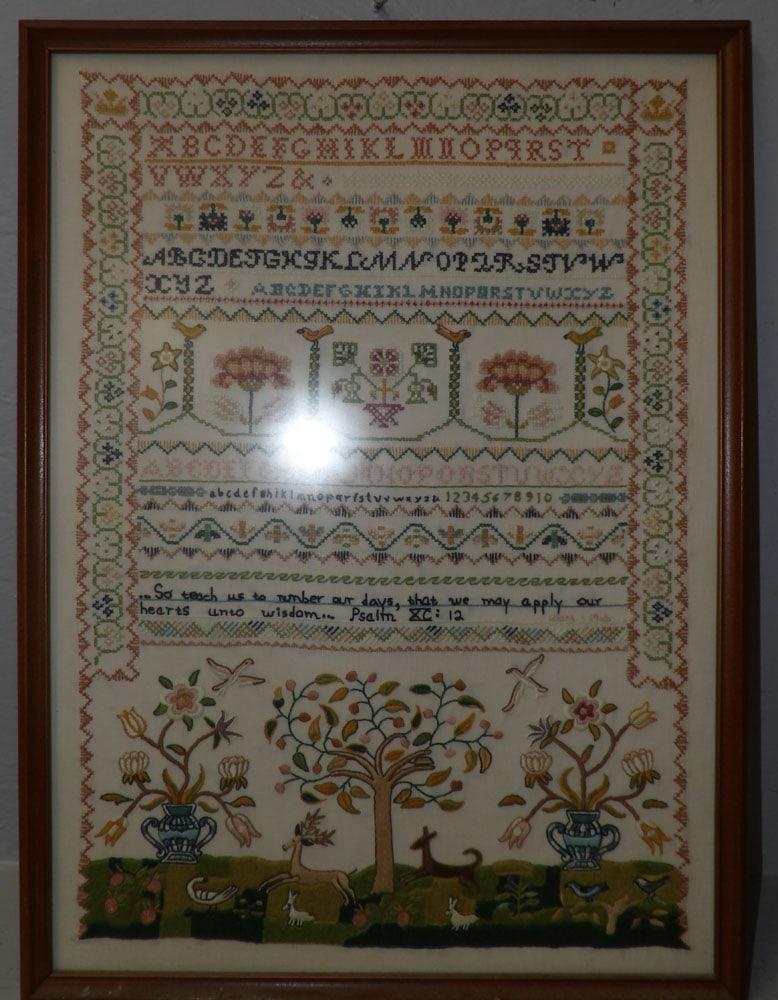 ABCDEFGHIKLMNOPQRST
VWXYZ&
ABCDEFGHIKLMNOPQRSTVW
XYZ ABCDEFGHIKLMNOPQRSTVWXYZ
ABCDEFG NOPQRSTUWXYZ
abcdefghiklmnopqrfstvvwxyz& 12345678910
...So teach us to number our days, that we may apply our
hearts unto wisdom... Psalm XC:12